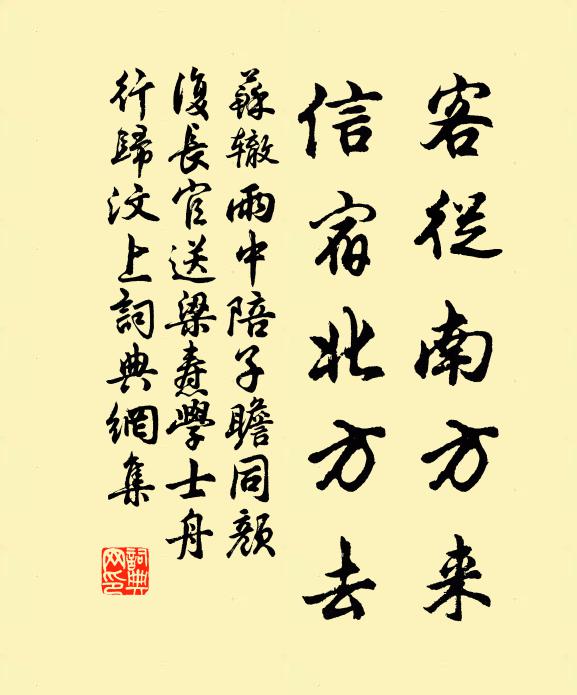 客從南方来
信宿北方去
蘇辙雨中陪子瞻同顔
復長官送梁焘學士舟
行歸汶上詞典網集
詞典
网印